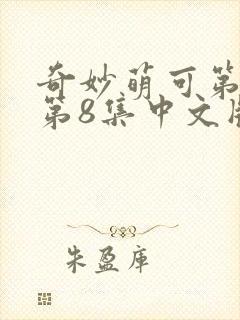 奇妙萌可第
第8集中文版
朱盈库